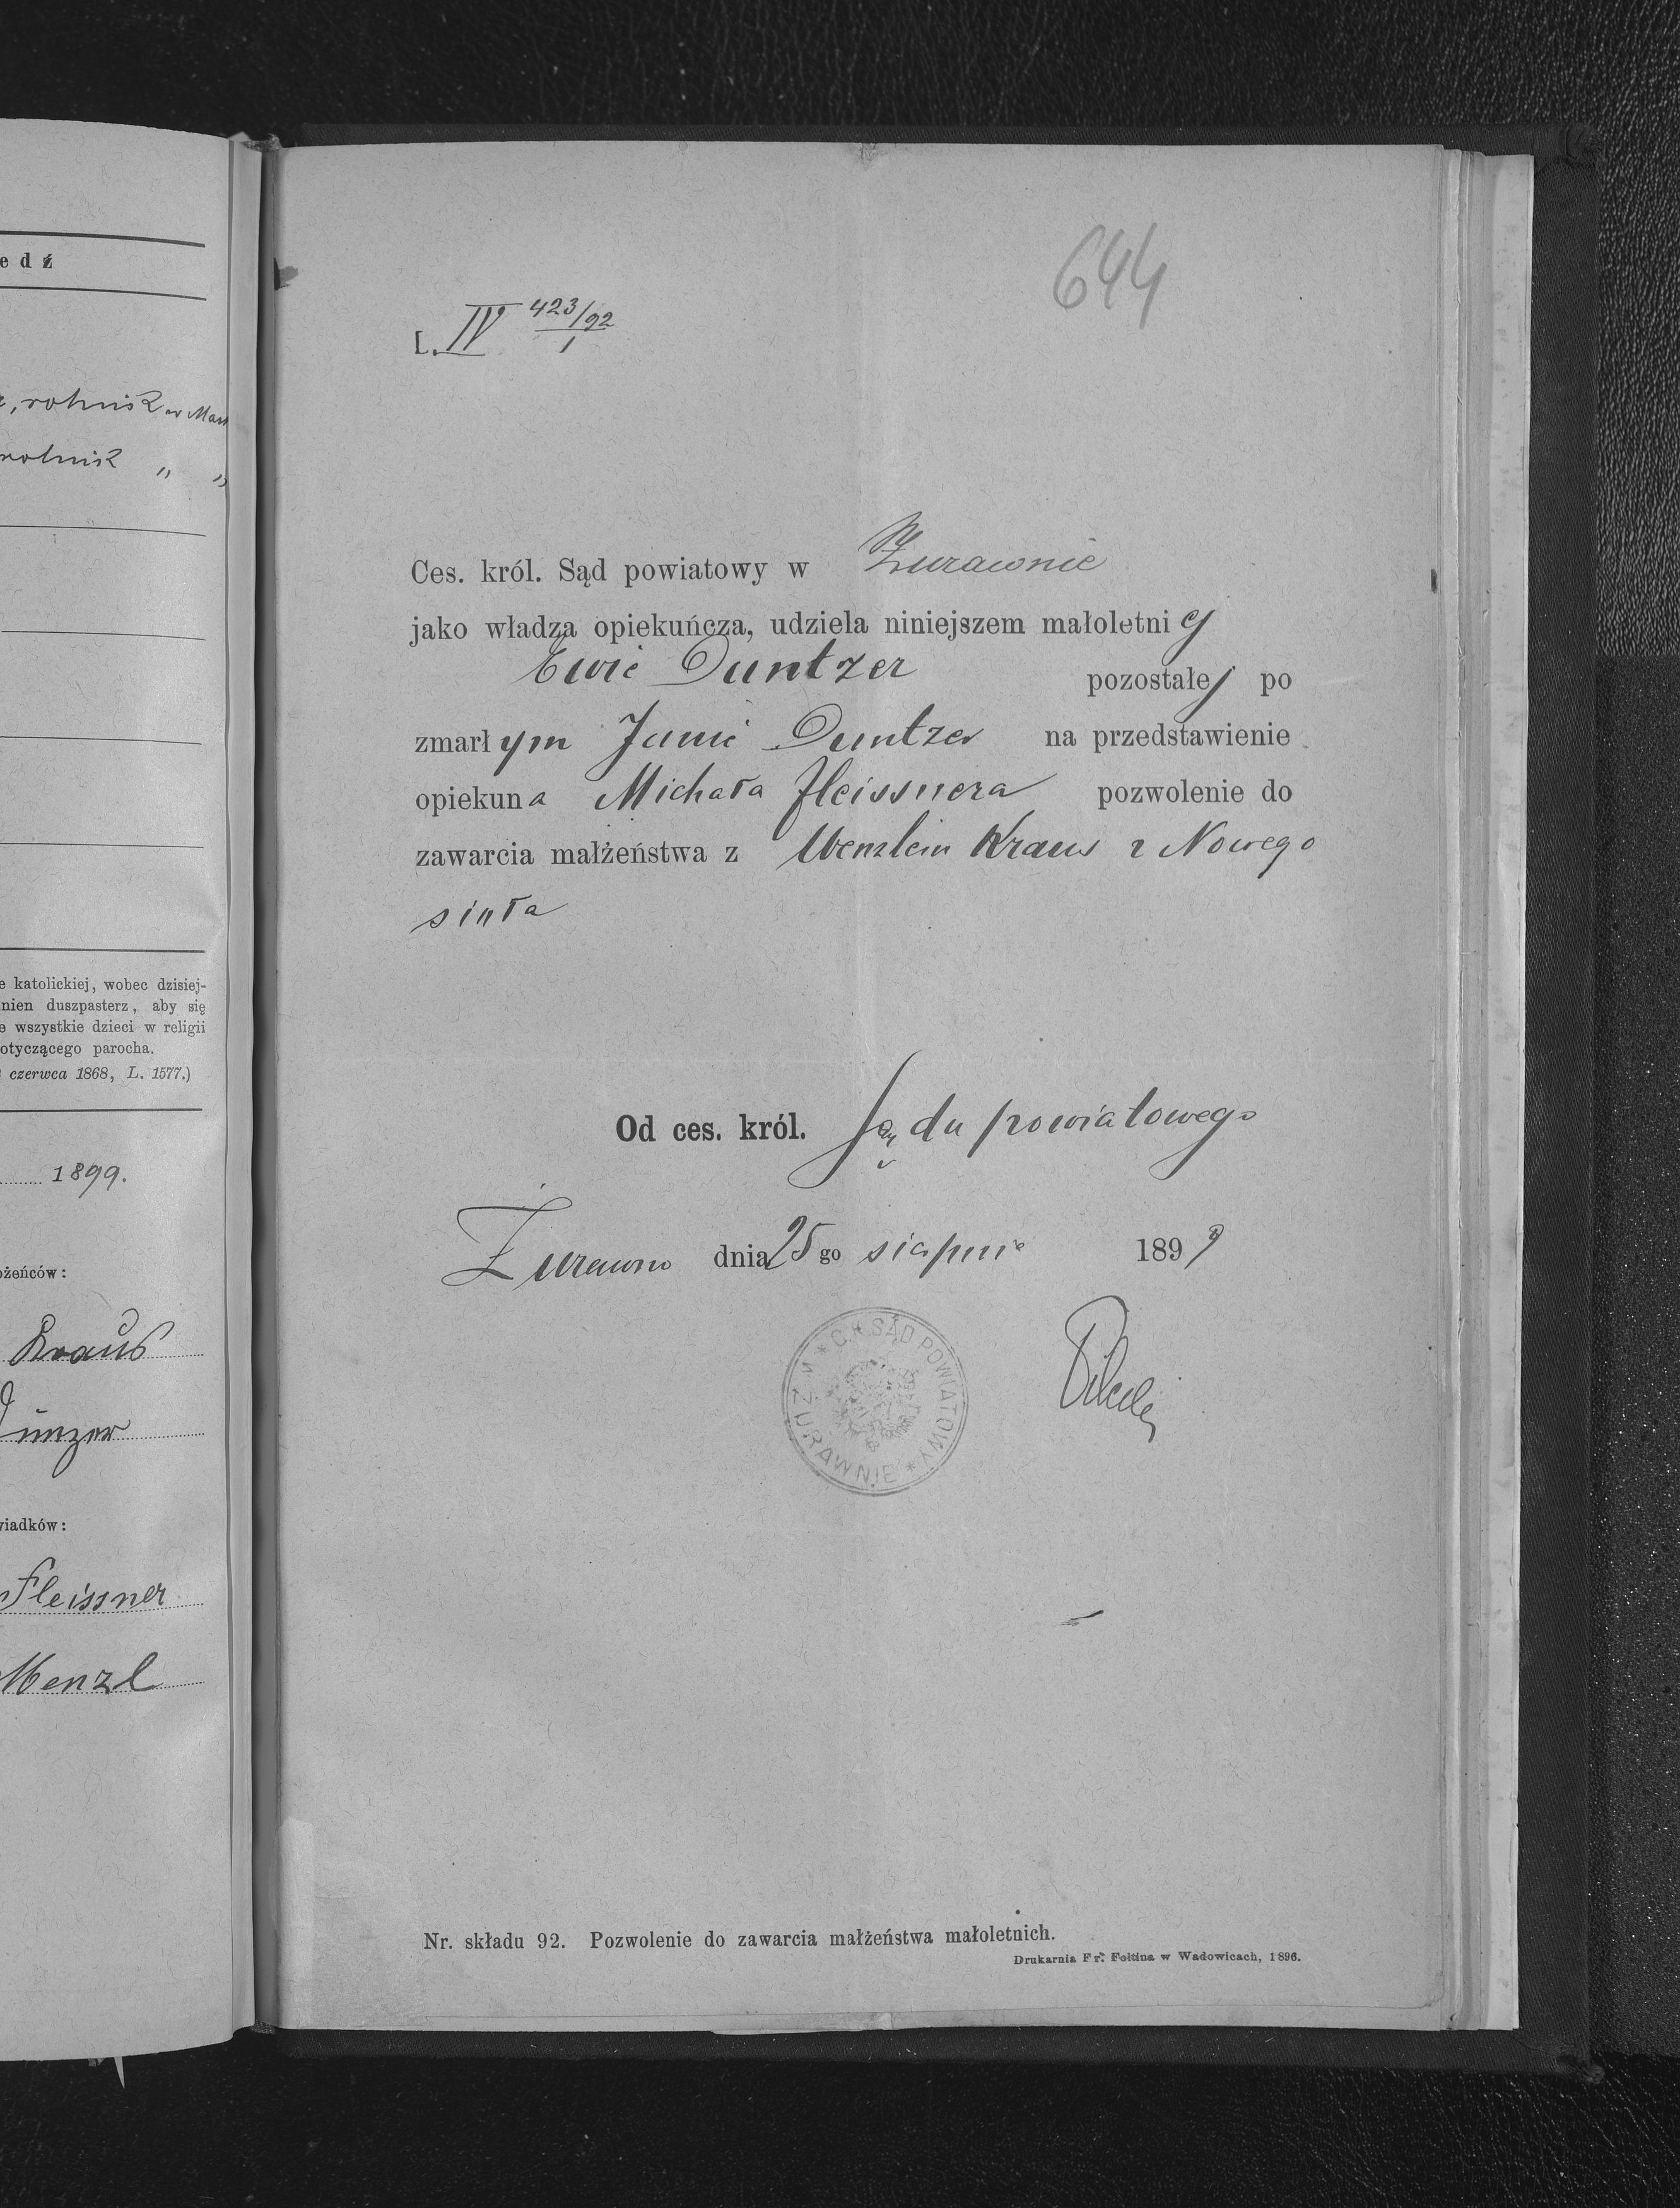 edź
, rolnik w Mar
rolnik " "
e katolickiej, wobec dzisiej-
nien duszpasterz, aby się
e wszystkie dzieci w religii
otyczącego parocha.
czerwca 1868, L. 1577.)
1899.
ożeńców:
Kraus
Dünzer
wiadków:
Fleissner
Menzl
644
L. IV 423/92
1
Ces. król. Sąd powiatowy w Żurawnie
jako władza opiekuńcza, udziela niniejszem małoletniej
Ewie Duntzer pozostałej po
zmarłym Janie Duntzer na przedstawienie
opiekuna Michała Fleissnera pozwolenie do
zawarcia małżeństwa z Wenzlem Kraus z Nowego
sioła
Od ces. król. Sądu powiatowego
Żurawno dnia 25 go sierpnia 1899
C. K. SĄD POWIATOWY * W ŻURAWNIE *
Nr. składu 92. Pozwolenie do zawarcia małżeństwa małoletnich.
Drukarnia Fr. Foltina w Wadowicach, 1896.